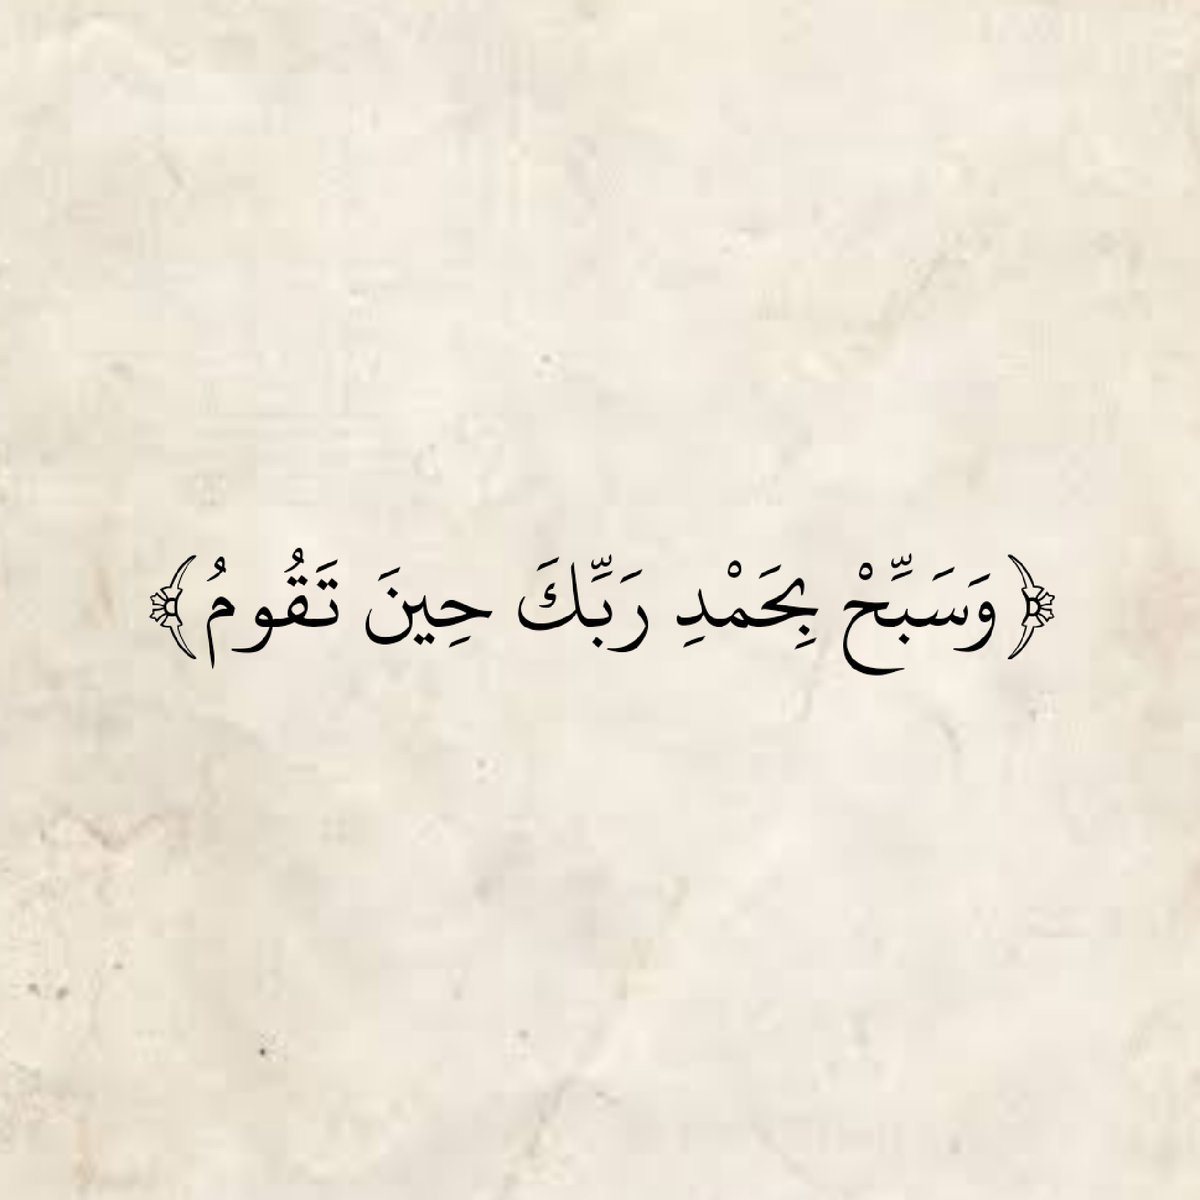 ﴿وَسَبِّحْ بِحَمْدِ رَبِّكَ حِينَ تَقُومُ﴾